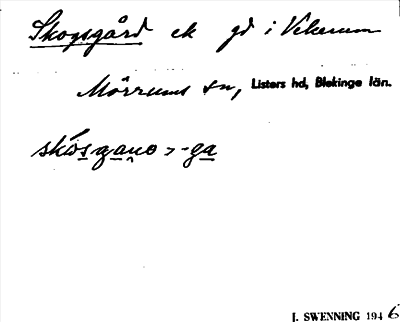 Skogsgård ek gd i Vekerum
Mörrums sn, Listers hd, Blekinge län.
skósgano > -ga
J. SWENNING 1946